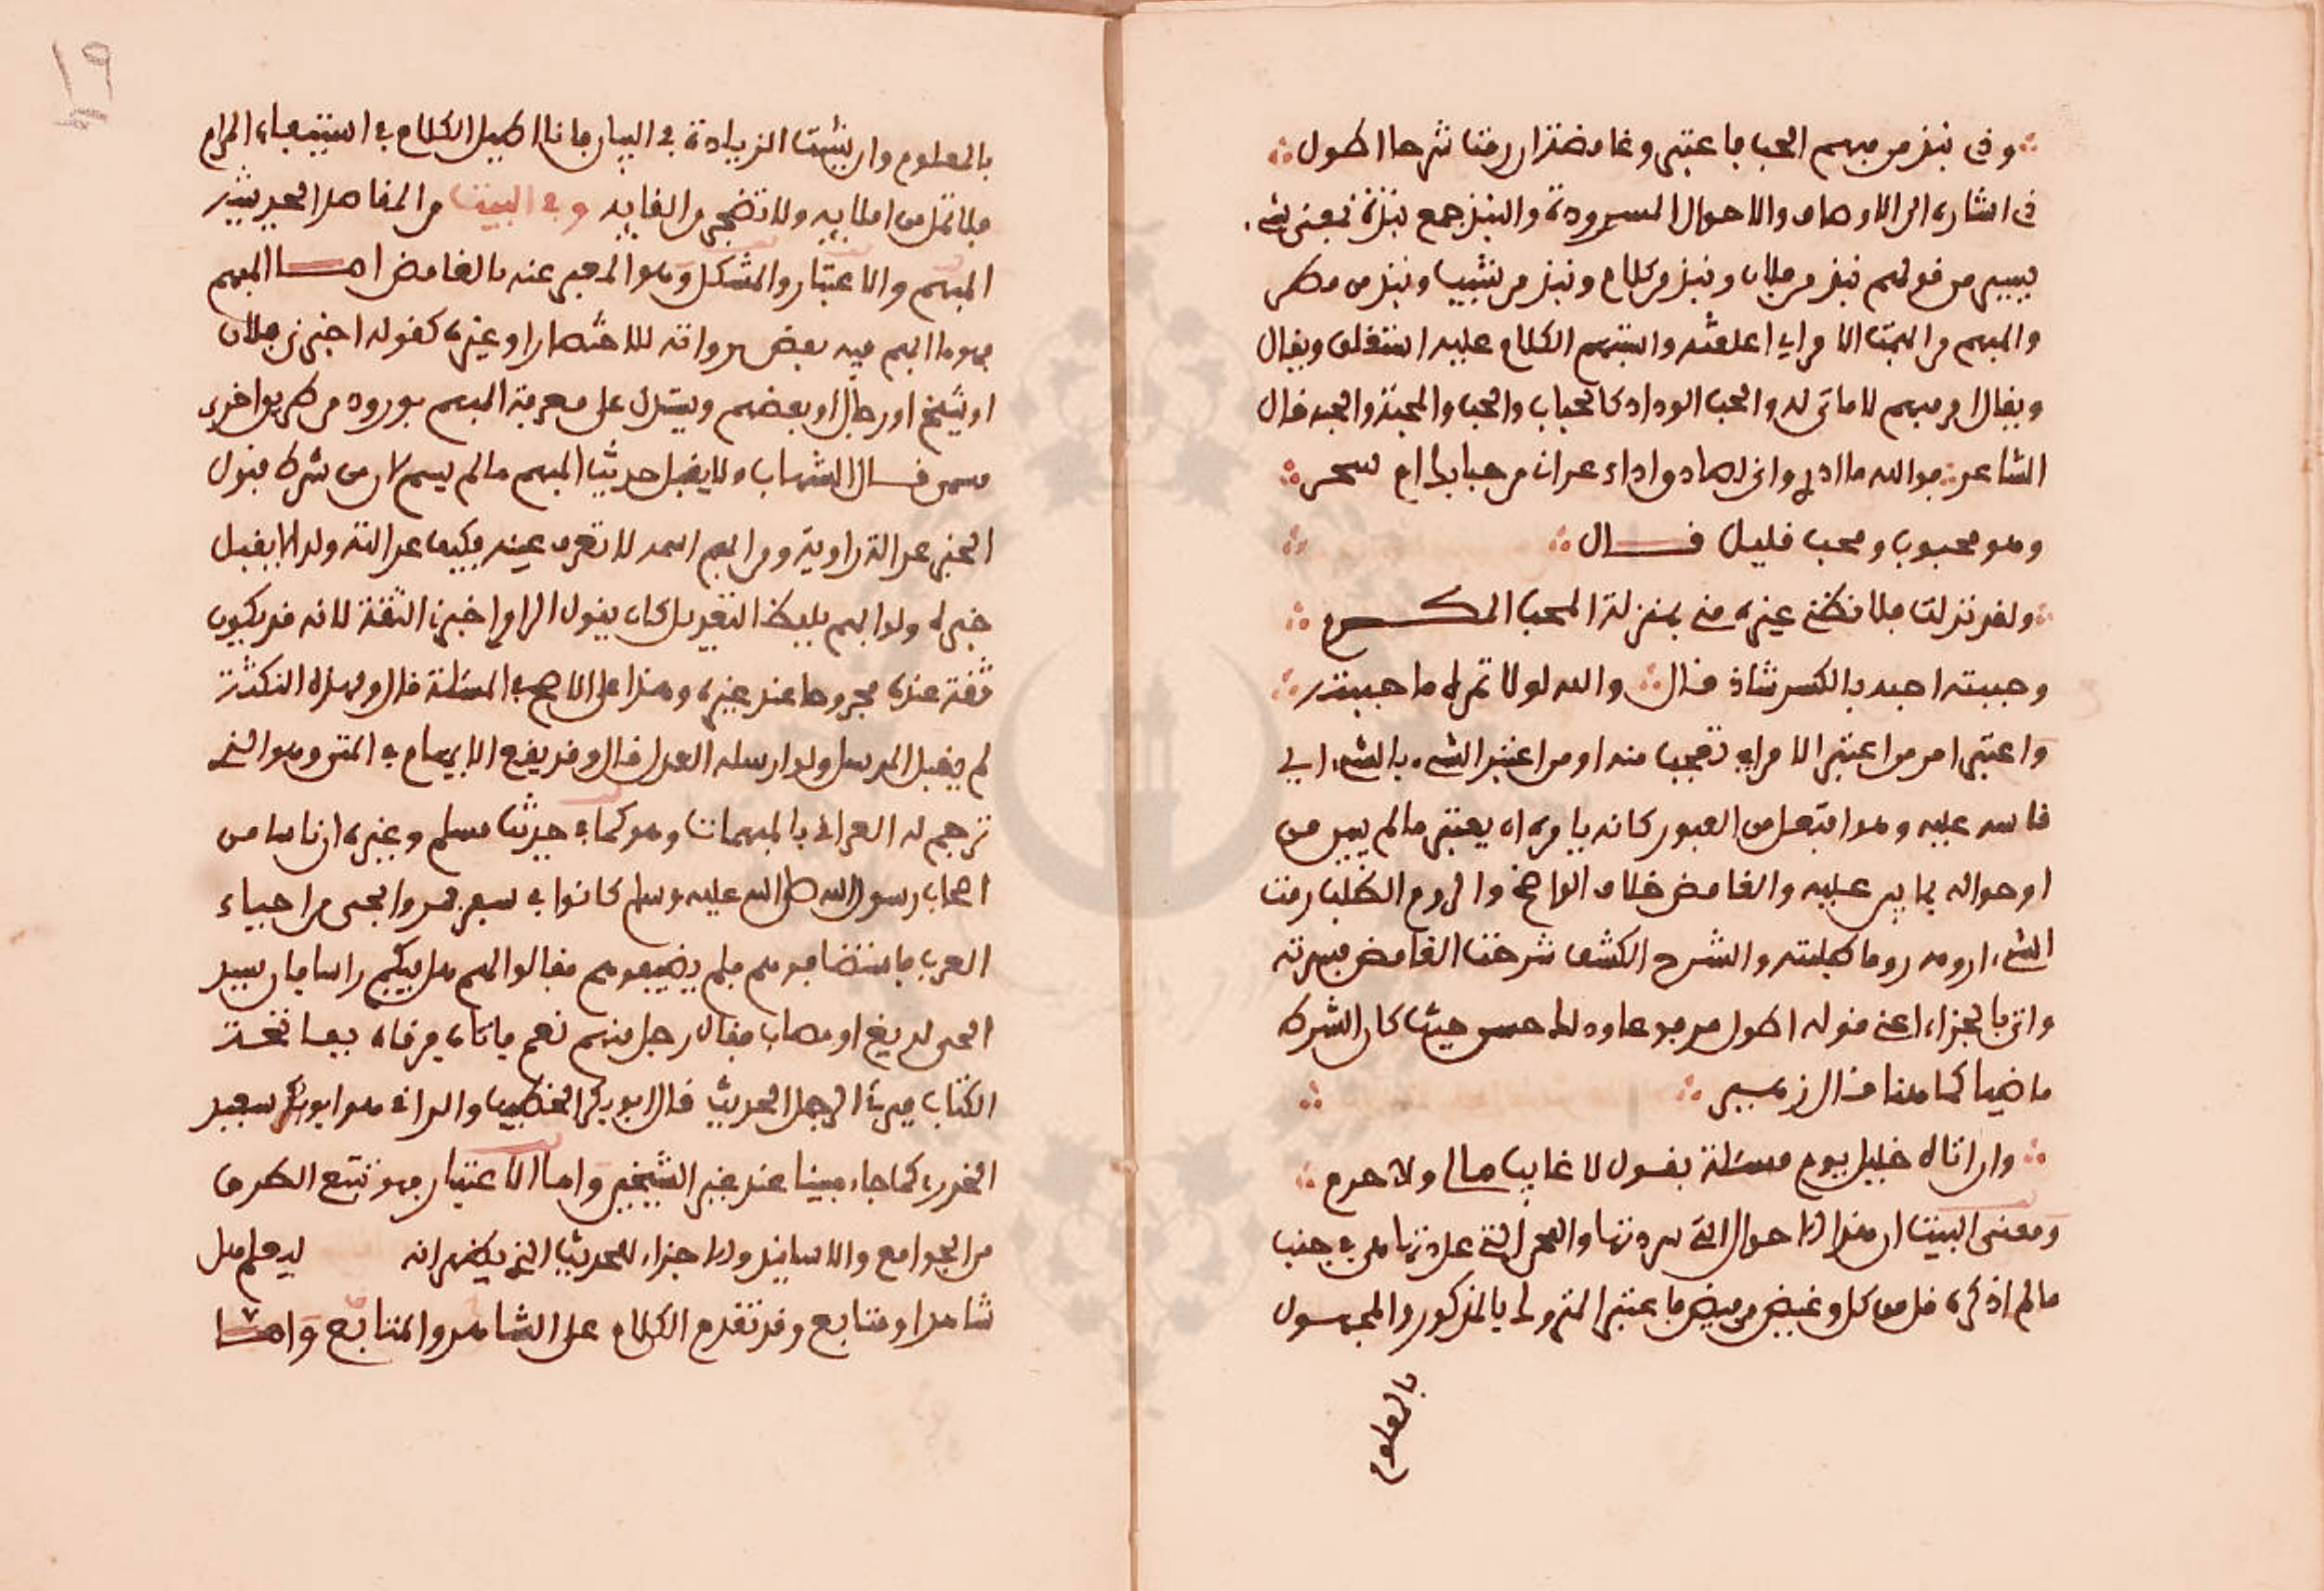 وذي نبذ من مبهم الحب فاعتبر وغامضه ان رمت شرحا اطول
ذي اشارة الى الاوصاف والاحوال المسرودة والنبذ جمع نبذة بمعنى شيء
يسير من قولهم نبذ من فلان ونبذ من كلام ونبذ من نشيب ونبذ من مطر
والمبهم من ابهمت الامر اي اغلقته واستبهم الكلام عليه استغلق ويقال
ويقال امر مبهم لا ماتى له والحب الوداد كالحباب والحب والمحبة والحبه قال
الشاعر فوالله ما ادري واني لصادق اداء عراني من حبابك ام سحر
وهو محبوب ومحب قليل قال
ولقد نزلت فلا تظني غيره مني بمنزلة المحب المكرم
وحببته احبه بالكسر شاذ قال والله لولا تمره ما حببته
واعتبر امر من اعتبر الامر اي تعجب منه او من اعتبر الشيء بالشيء اي
قاسه عليه وهو افتعل من العبور كانه يامره ان يعتبر ما لم يبين من
احواله بما بين عليه والغامض خلاف الواضح والروم الطلب رمت
الشيء ارومه روما طلبته والشرح الكشف شرحت الغامض فسرته
واتى بالجزاء اعني قوله اطول مرفوعا وذلك حسن حيث كان الشرط
ماضيا كما هنا قال زهير
وان اتاه خليل يوم مسئلة يقول لا غايب مالي ولا حرم
ومعنى البيت ان هذه الاحوال التي سردتها والعجر التي عددتها هي في جنب
ما لم اذكره قل من كل وغيض من فيض فاعتبر المتروك بالمذكور والمجهول
بالمعلوم
١٩
بالمعلوم وان شئت الزيادة في البيان فانا اطيل الكلام في استيفاء المرام
فلا تمل من املاييه ولا تضجر من الفاييه وفي البيت من المقاصد الحديثية
المبهم والاعتبار والمشكل وهو المعبر عنه بالغامض اما المبهم
فهو ما ابهم فيه بعض رواته للاختصار او غيره كقوله اخبرني فلان
او شيخ او رجل او بعضهم ويستدل على معرفة المبهم بوروده من طريق اخرى
مسمى قال الشهاب ولا يقبل حديث المبهم ما لم يسم لان من شرط قبول
الخبر عدالة راويه ومن ابهم اسمه لا تعرف عينه فكيف عدالته ولا يقبل
خبره ولو ابهم بلفظ التعديل كان يقول الراوي اخبرني الثقة لانه قد يكون
ثقة عنده مجروحا عند غيره وهذا على الاصح في المسئلة قال ولهذه النكتة
لم يقبل المرسل ولو ارسله العدل قال وقد يقع الابهام في المتن وهو الذي
ترجم له العراقي بالمبهمات وهو كما في حديث مسلم وغيره ان ناسا من
اصحاب رسول الله صلى الله عليه وسلم كانوا في سفر فمروا بحي من احياء
العرب فاستضافوهم فلم يضيفوهم فقالوا لهم هل فيكم راق فان سيد
الحي لديغ او مصاب فقال رجل منهم نعم فاتاه فرقاه بفاتحة
الكتاب فبرئ الرجل الحديث قال ابو بكر الخطيب والراقي هو ابو سعيد
الخدري كما جاء مبينا عند غير الشيخين واما الاعتبار فهو تتبع الطرق
من الجوامع والاسانيد والاجزاء للحديث الذي يظهر انه ليعلم هل
شاهد او متابع وقد تقدم الكلام على الشاهد والمتابع واما